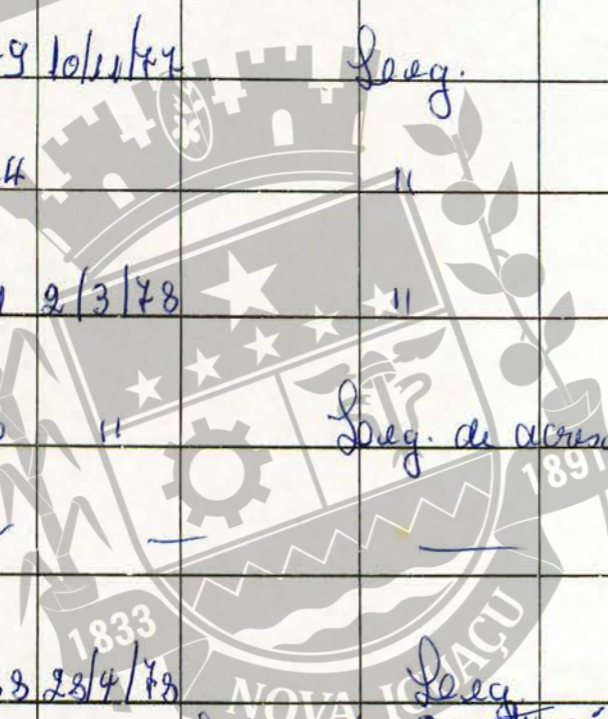 9 10/11/77 Leg.
4 "
2/3/78 "
" Leg. de acresc
— —
8 28/4/78 Leg.
1833
1891
NOVA IGUAÇU